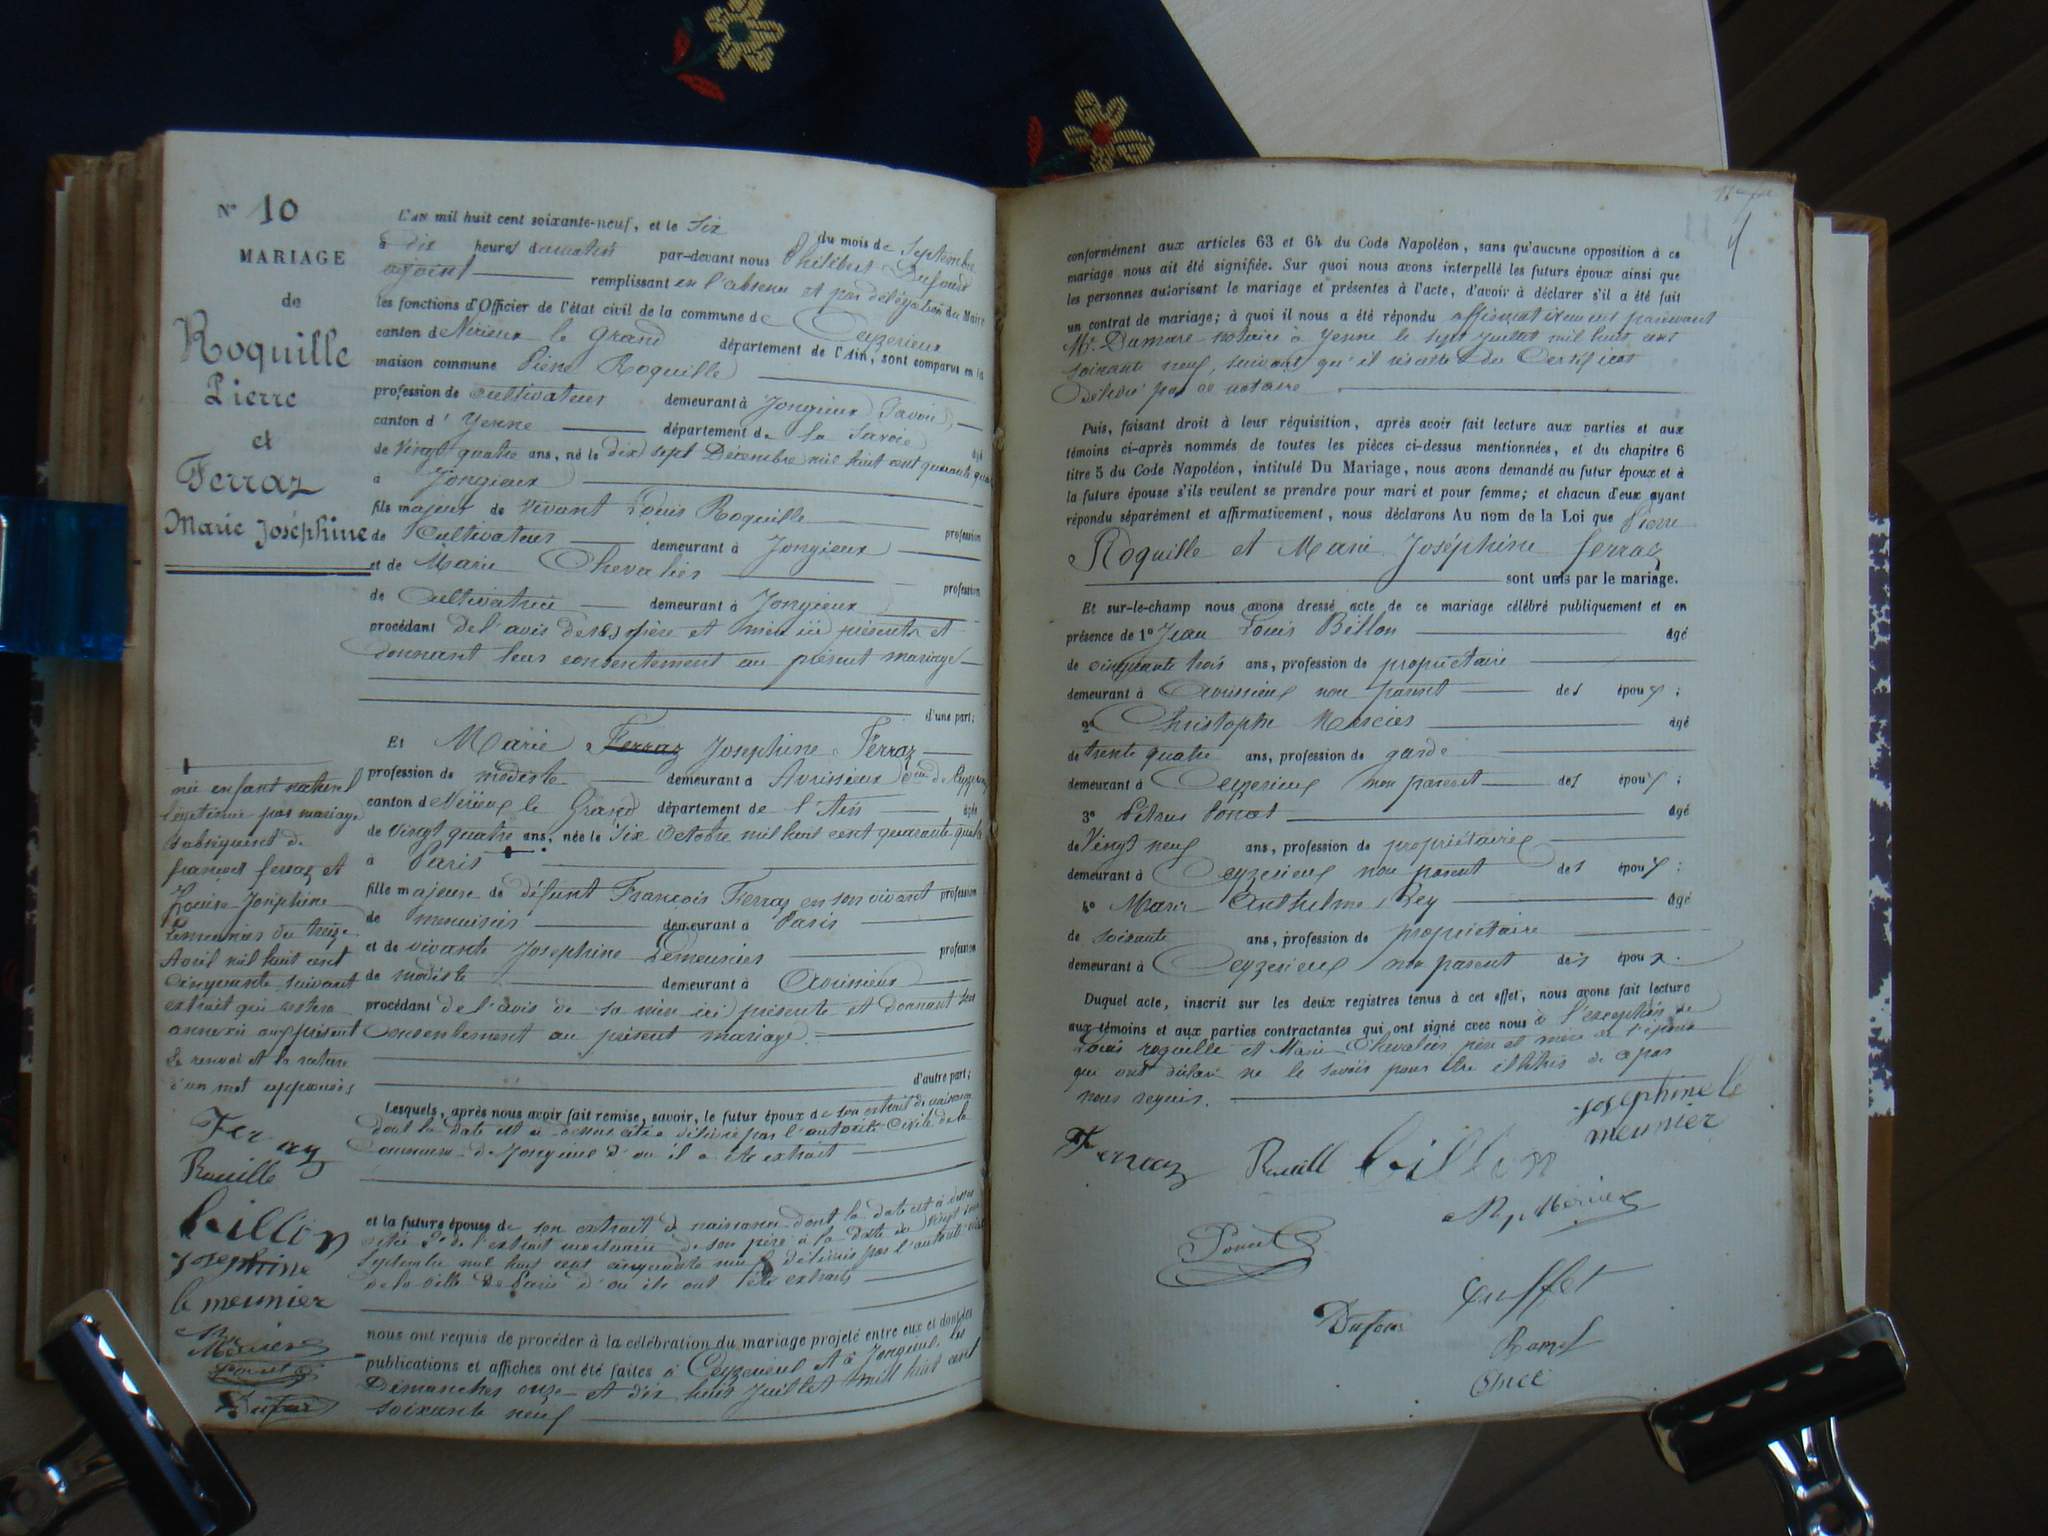 N° 10
MARIAGE
de
Roquille
Pierre
et
Ferraz
Marie Joséphine
L'AN mil huit cent soixante-neuf, et le six du mois de Septembre
à dix heures du matin par-devant nous Philibert Dufour
adjoint remplissant en l'absence et par délégation du Maire
les fonctions d'Officier de l'état civil de la commune de Ceyzerieux
canton de Virieux le Grand département de l'Ain, sont comparus en la
maison commune Pierre Roquille
profession de cultivateur demeurant à Jongieux (Savoie)
canton d' Yenne département de la Savoie âgé
de vingt quatre ans, né le dix sept Décembre mil huit cent quarante quatre
à Jongieux
fils majeur de vivant Louis Roquille profession
de Cultivateur demeurant à Jongieux
et de Marie Chevalier profession
de Cultivatrice demeurant à Jongieux
procédant de l'avis de ses père et mère ici présents et
donnant leur consentement au présent mariage
d'une part;
Et Marie Ferraz Josephine Ferraz
profession de modiste demeurant à Avrissieux
canton de Virieux le Grand département de l'Ain âgée
de vingt quatre ans, née le six octobre mil huit cent quarante quatre
à Paris
fille majeure de défunt François Ferraz en son vivant profession
de menuisier demeurant à Paris
et de vivante Josephine Lemeunier profession
de modiste demeurant à Avrissieux
procédant de l'avis de sa mère ici présente et donnant son
consentement au présent mariage.
d'autre part;
Lesquels, après nous avoir fait remise, savoir, le futur époux de son extrait de naissance
dont la date est ci dessus citée délivré par l'autorité civile de la
commune de Jongieux d'où il a été extrait
et la future épouse de son extrait de naissance dont la date est ci dessus
citée 2° de l'extrait mortuaire de son père à la date du
Septembre mil huit cent cinquante neuf délivrés par l'autorité civile
de la ville de Paris d'où ils ont été extraits
nous ont requis de procéder à la célébration du mariage projeté entre eux et dont les
publications et affiches ont été faites à Ceyzerieux et à Jongieux les
Dimanches onze et dix huit Juillet mill huit cent
soixante neuf
née enfant naturel
légitimée par mariage
subséquent de
françois ferraz et
Louise Joséphine
Lemeunier du treize
Avril mil huit cent
cinquante suivant
extrait qui restera
annexé au présent
Le renvoi et la rature
d'un mot approuvés
Ferraz
Rouille
billon
josephine
le meunier
Mercier
Dufour
conformément aux articles 63 et 64 du Code Napoléon, sans qu'aucune opposition à ce
mariage nous ait été signifiée. Sur quoi nous avons interpellé les futurs époux ainsi que
les personnes autorisant le mariage et présentes à l'acte, d'avoir à déclarer s'il a été fait
un contrat de mariage; à quoi il nous a été répondu affirmativement pardevant
Me. Dumare notaire à Yenne le sept juillet mil huit cent
soixante neuf, suivant qu'il résulte du Certificat
Délivré par ce notaire
Puis, faisant droit à leur réquisition, après avoir fait lecture aux parties et aux
témoins ci-après nommés de toutes les pièces ci-dessus mentionnées, et du chapitre 6
titre 5 du Code Napoléon, intitulé Du Mariage, nous avons demandé au futur époux et à
la future épouse s'ils veulent se prendre pour mari et pour femme; et chacun d'eux ayant
répondu séparément et affirmativement, nous déclarons Au nom de la Loi que Pierre
Roquille et Marie Joséphine ferraz
sont unis par le mariage.
Et sur-le-champ nous avons dressé acte de ce mariage célébré publiquement et en
présence de 1° Jean Louis Billon âgé
de cinquante trois ans, profession de propriétaire
demeurant à Avrissieux non parent des époux;
2° Christophe Mercier âgé
de trente quatre ans, profession de garde
demeurant à Ceyzerieux non parent des époux;
3° Pétrus Poncet âgé
de Vingt neuf ans, profession de propriétaire
demeurant à Ceyzerieux non parent des époux;
4° Marin Anthelme Rey âgé
de soixante ans, profession de propriétaire
demeurant à Ceyzerieux non parent des époux.
Duquel acte, inscrit sur les deux registres tenus à cet effet, nous avons fait lecture
aux témoins et aux parties contractantes qui ont signé avec nous à l'exception de
Louis roquille et Marie Chevalier père et mère de l'époux
qui ont déclaré ne le savoir pour être illitrés de ce par
nous requis.
josephine le
meunier
Ferraz Rouill billon
Mercier
Poncet
Dufour